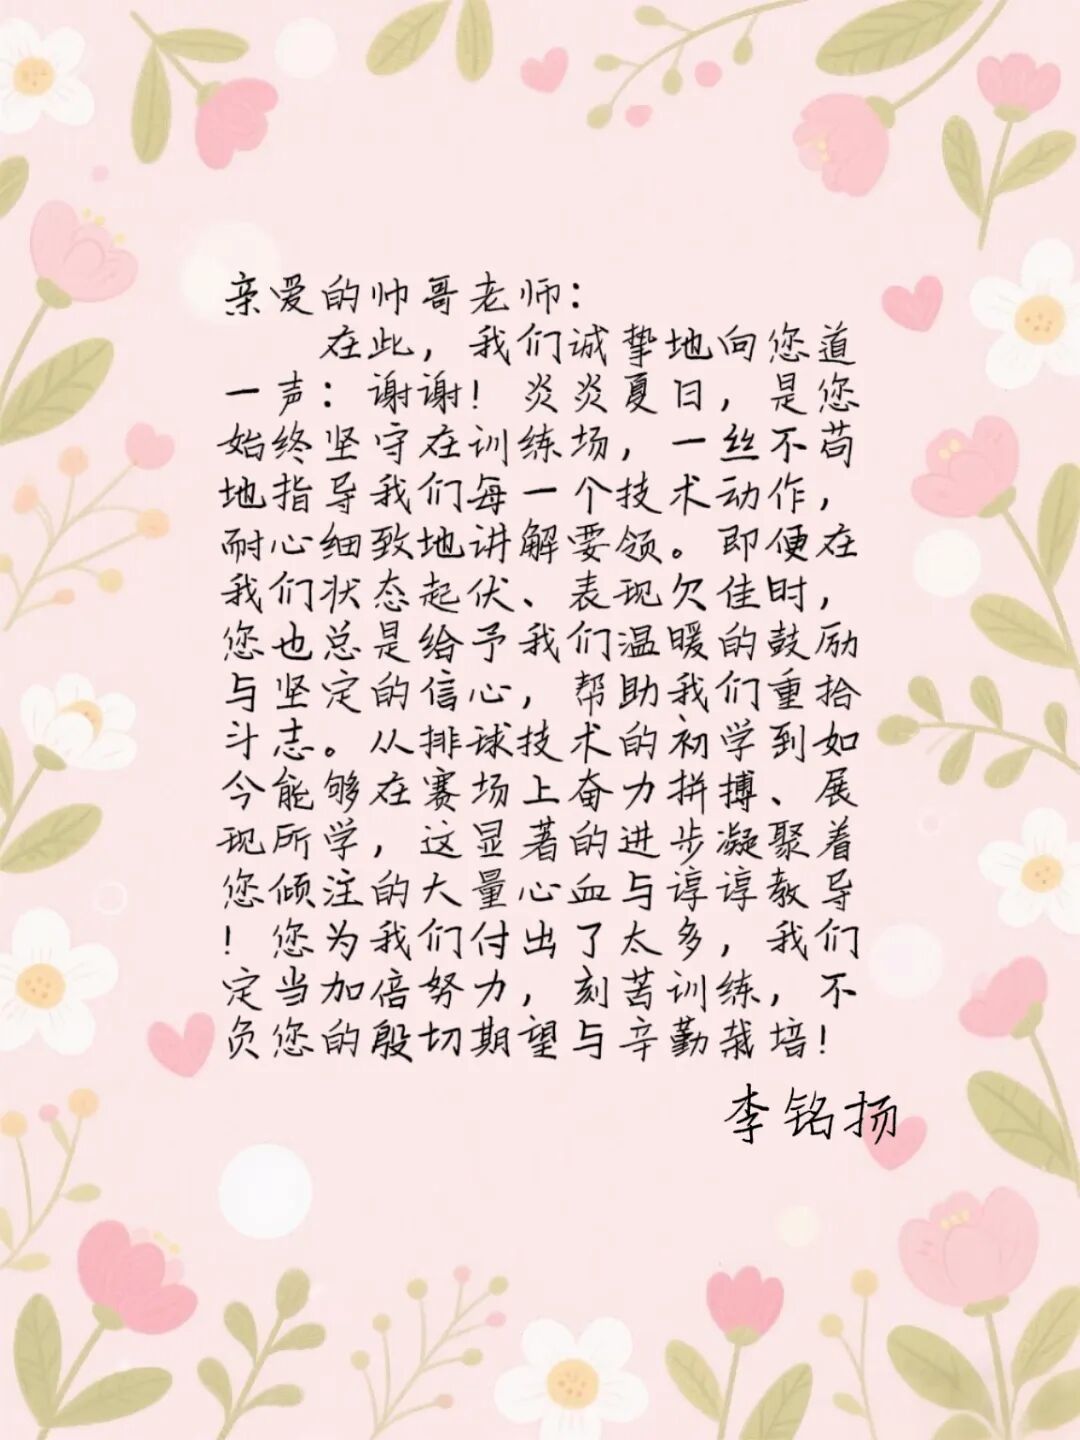 亲爱的帅哥老师：
在此，我们诚挚地向您道
一声：谢谢！炎炎夏日，是您
始终坚守在训练场，一丝不苟
地指导我们每一个技术动作，
耐心细致地讲解要领。即便在
我们状态起伏、表现欠佳时，
您也总是给予我们温暖的鼓励
与坚定的信心，帮助我们重拾
斗志。从排球技术的初学到如
今能够在赛场上奋力拼搏、展
现所学，这显著的进步凝聚着
您倾注的大量心血与谆谆教导
！您为我们付出了太多，我们
定当加倍努力，刻苦训练，不
负您的殷切期望与辛勤栽培！
李铭扬